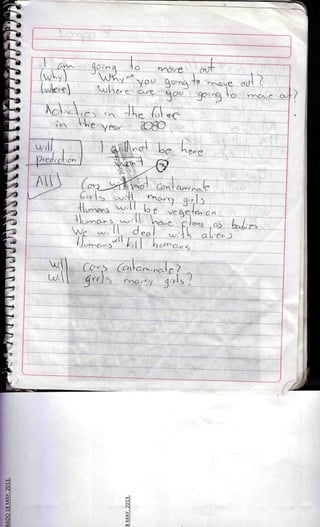 I am going to move out
(why) Why you going to move out?
(where) Where are you going to move out?
Activities in the
in the year 2080
will I not be here
prediction won't
All Cars will not contaminate
Girls will marry girls
Humans will be vegetarian
Humans will have as babies
We will deal with aliens
Humans will kill humans
Will cars contaminate?
Will girls marry girls?
ADO 18 MAY. 2013
8 MAY. 2013